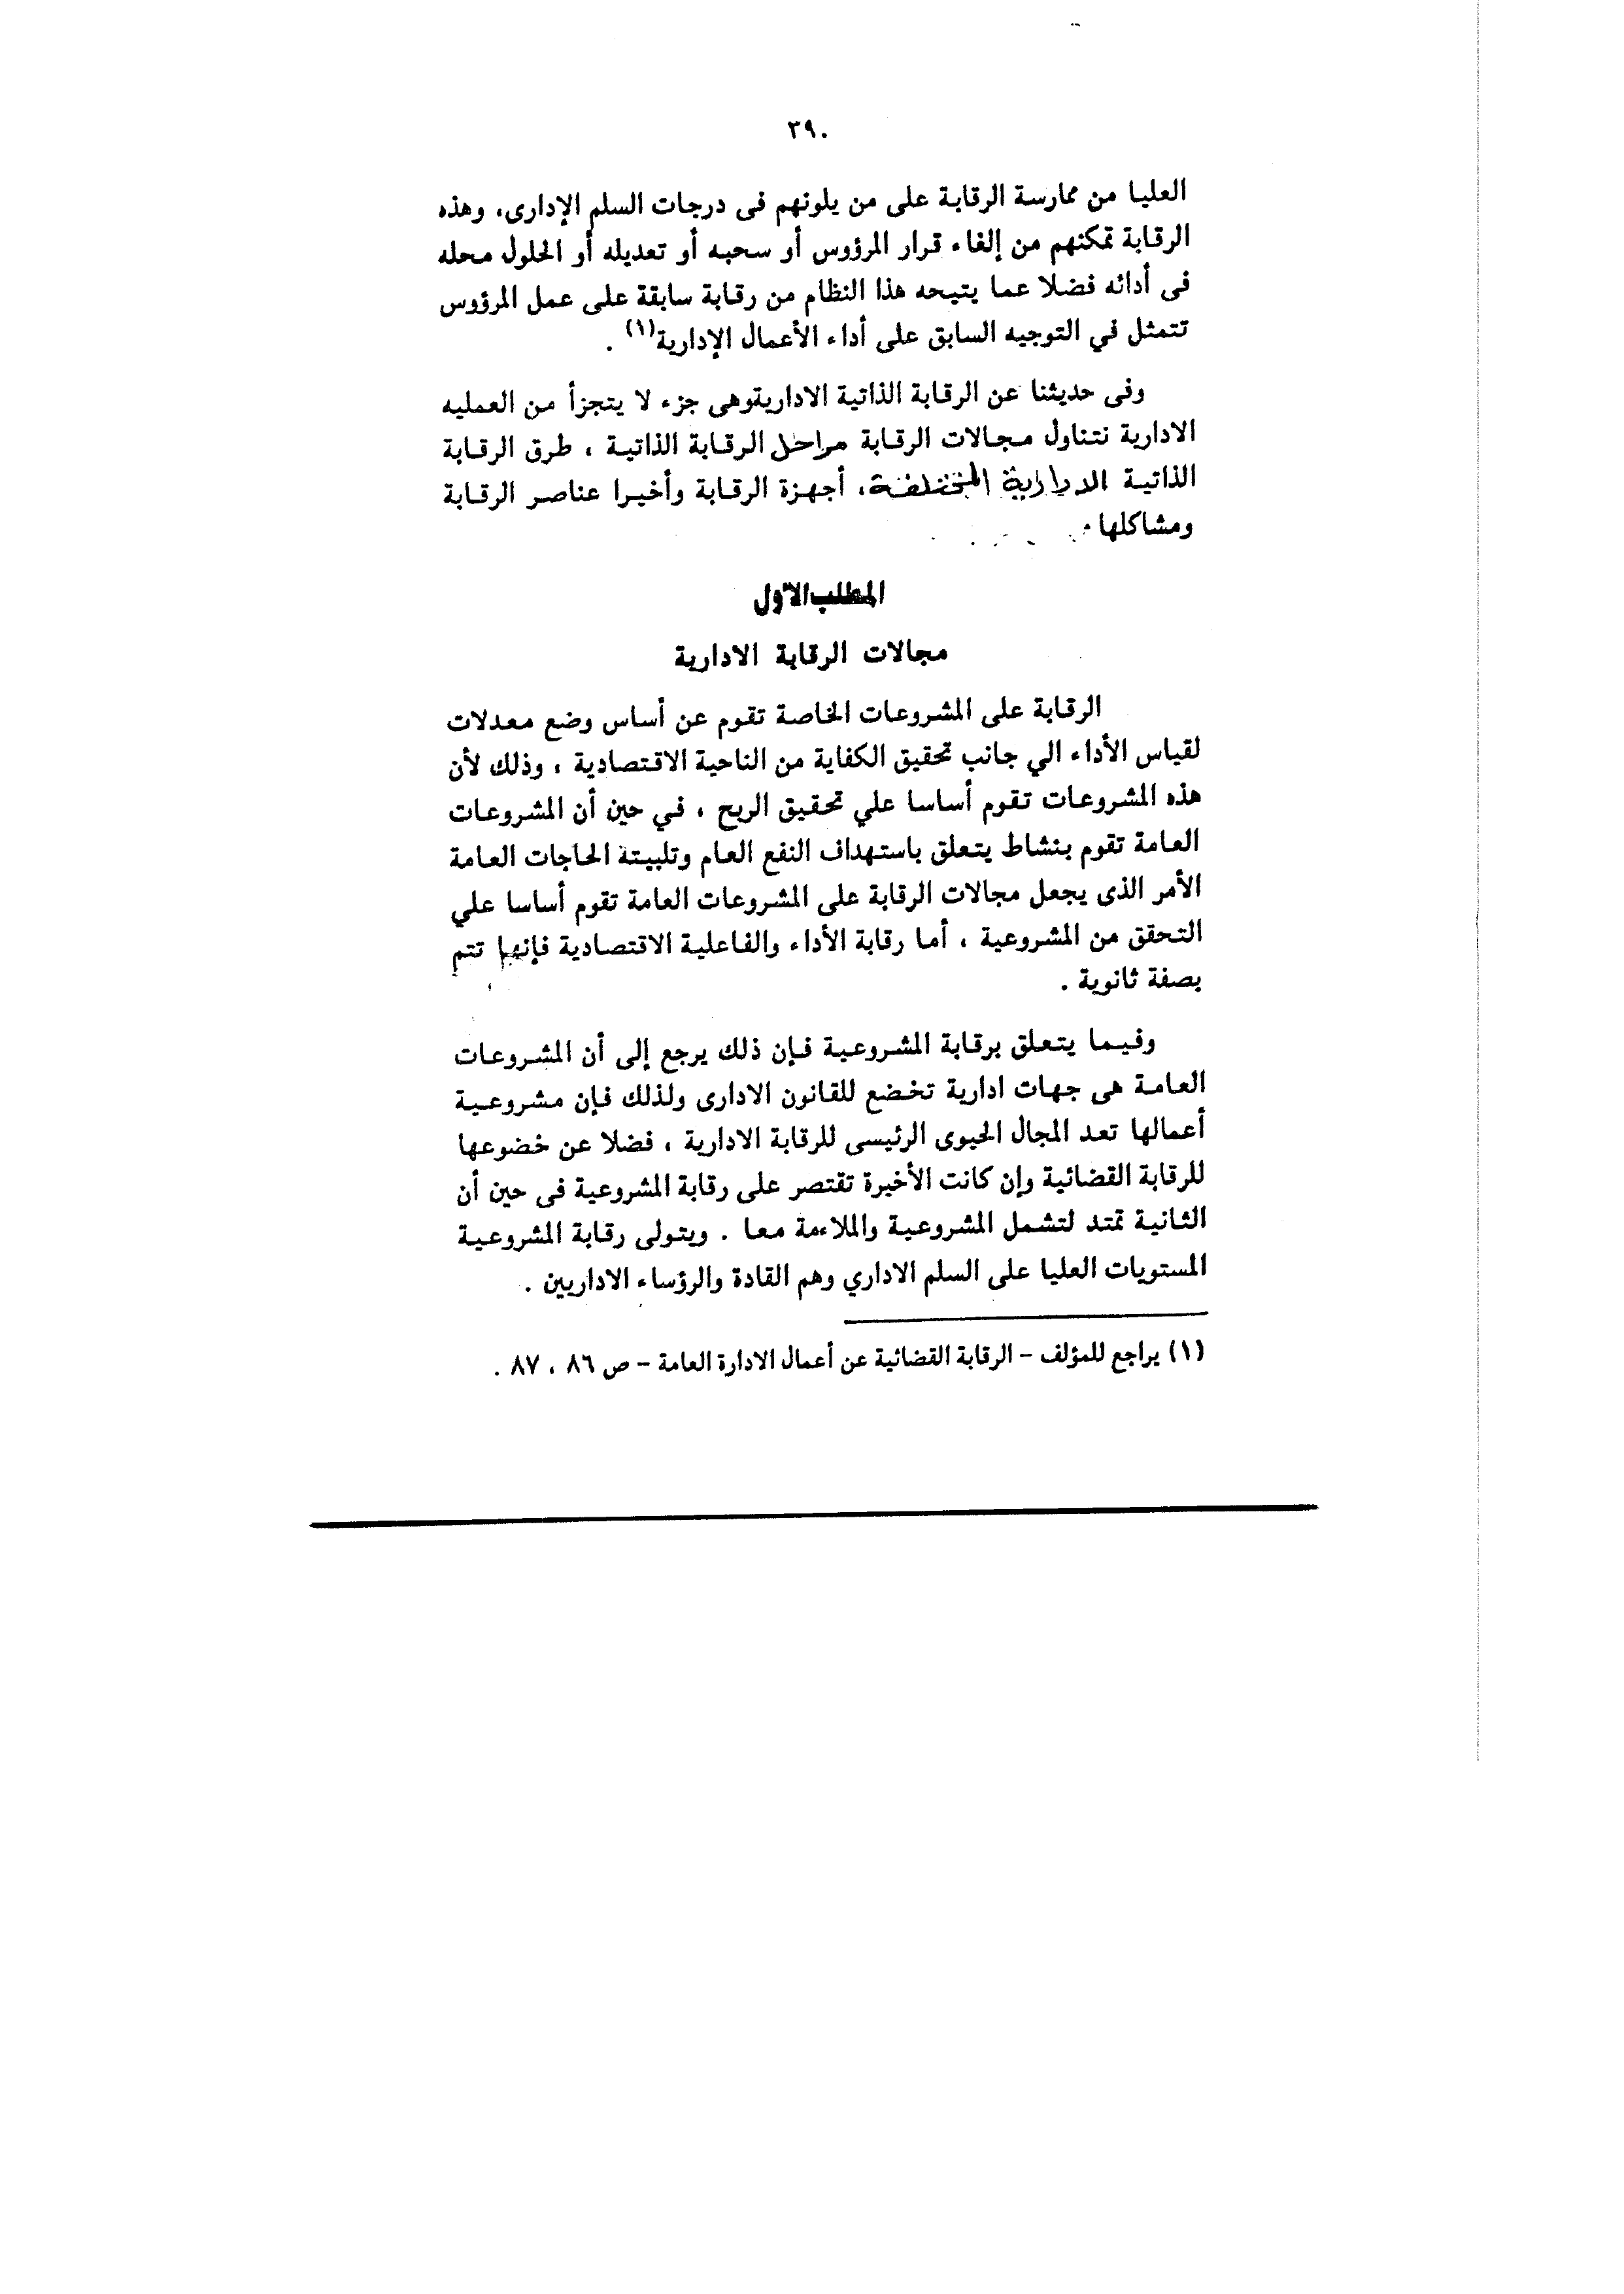 ٣٩٠
العليا من ممارسة الرقابة على من يلونهم فى درجات السلم الإدارى، وهذه
الرقابة تمكنهم من إلغاء قرار المرؤوس أو سحبه أو تعديله أو الحلول محله
فى أدائه فضلا عما يتيحه هذا النظام من رقابة سابقة على عمل المرؤوس
تتمثل في التوجيه السابق على أداء الأعمال الإدارية(١) .
وفى حديثنا عن الرقابة الذاتية الاداريةوهى جزء لا يتجزأ من العمليه
الادارية نتناول مجالات الرقابة مراحل الرقابة الذاتية ، طرق الرقابة
الذاتية الادارية المختلفة، أجهزة الرقابة وأخيرا عناصر الرقابة
ومشاكلها .
المطلب الأول
مجالات الرقابة الادارية
الرقابة على المشروعات الخاصة تقوم عن أساس وضع معدلات
لقياس الأداء الي جانب تحقيق الكفاية من الناحية الاقتصادية ، وذلك لأن
هذه المشروعات تقوم أساسا علي تحقيق الربح ، في حين أن المشروعات
العامة تقوم بنشاط يتعلق باستهداف النفع العام وتلبيتة الحاجات العامة
الأمر الذى يجعل مجالات الرقابة على المشروعات العامة تقوم أساسا علي
التحقق من المشروعية ، أما رقابة الأداء والفاعلية الاقتصادية فإنها تتم
بصفة ثانوية .
وفيما يتعلق برقابة المشروعية فإن ذلك يرجع إلى أن المشروعات
العامة هى جهات ادارية تخضع للقانون الادارى ولذلك فإن مشروعية
أعمالها تعد المجال الحيوى الرئيسى للرقابة الادارية ، فضلا عن خضوعها
للرقابة القضائية وإن كانت الأخيرة تقتصر على رقابة المشروعية فى حين أن
الثانية تمتد لتشمل المشروعية والملاءمة معا . ويتولى رقابة المشروعية
المستويات العليا على السلم الاداري وهم القادة والرؤساء الاداريين .
(١) يراجع للمؤلف - الرقابة القضائية عن أعمال الادارة العامة - ص ٨٦ ، ٨٧ .